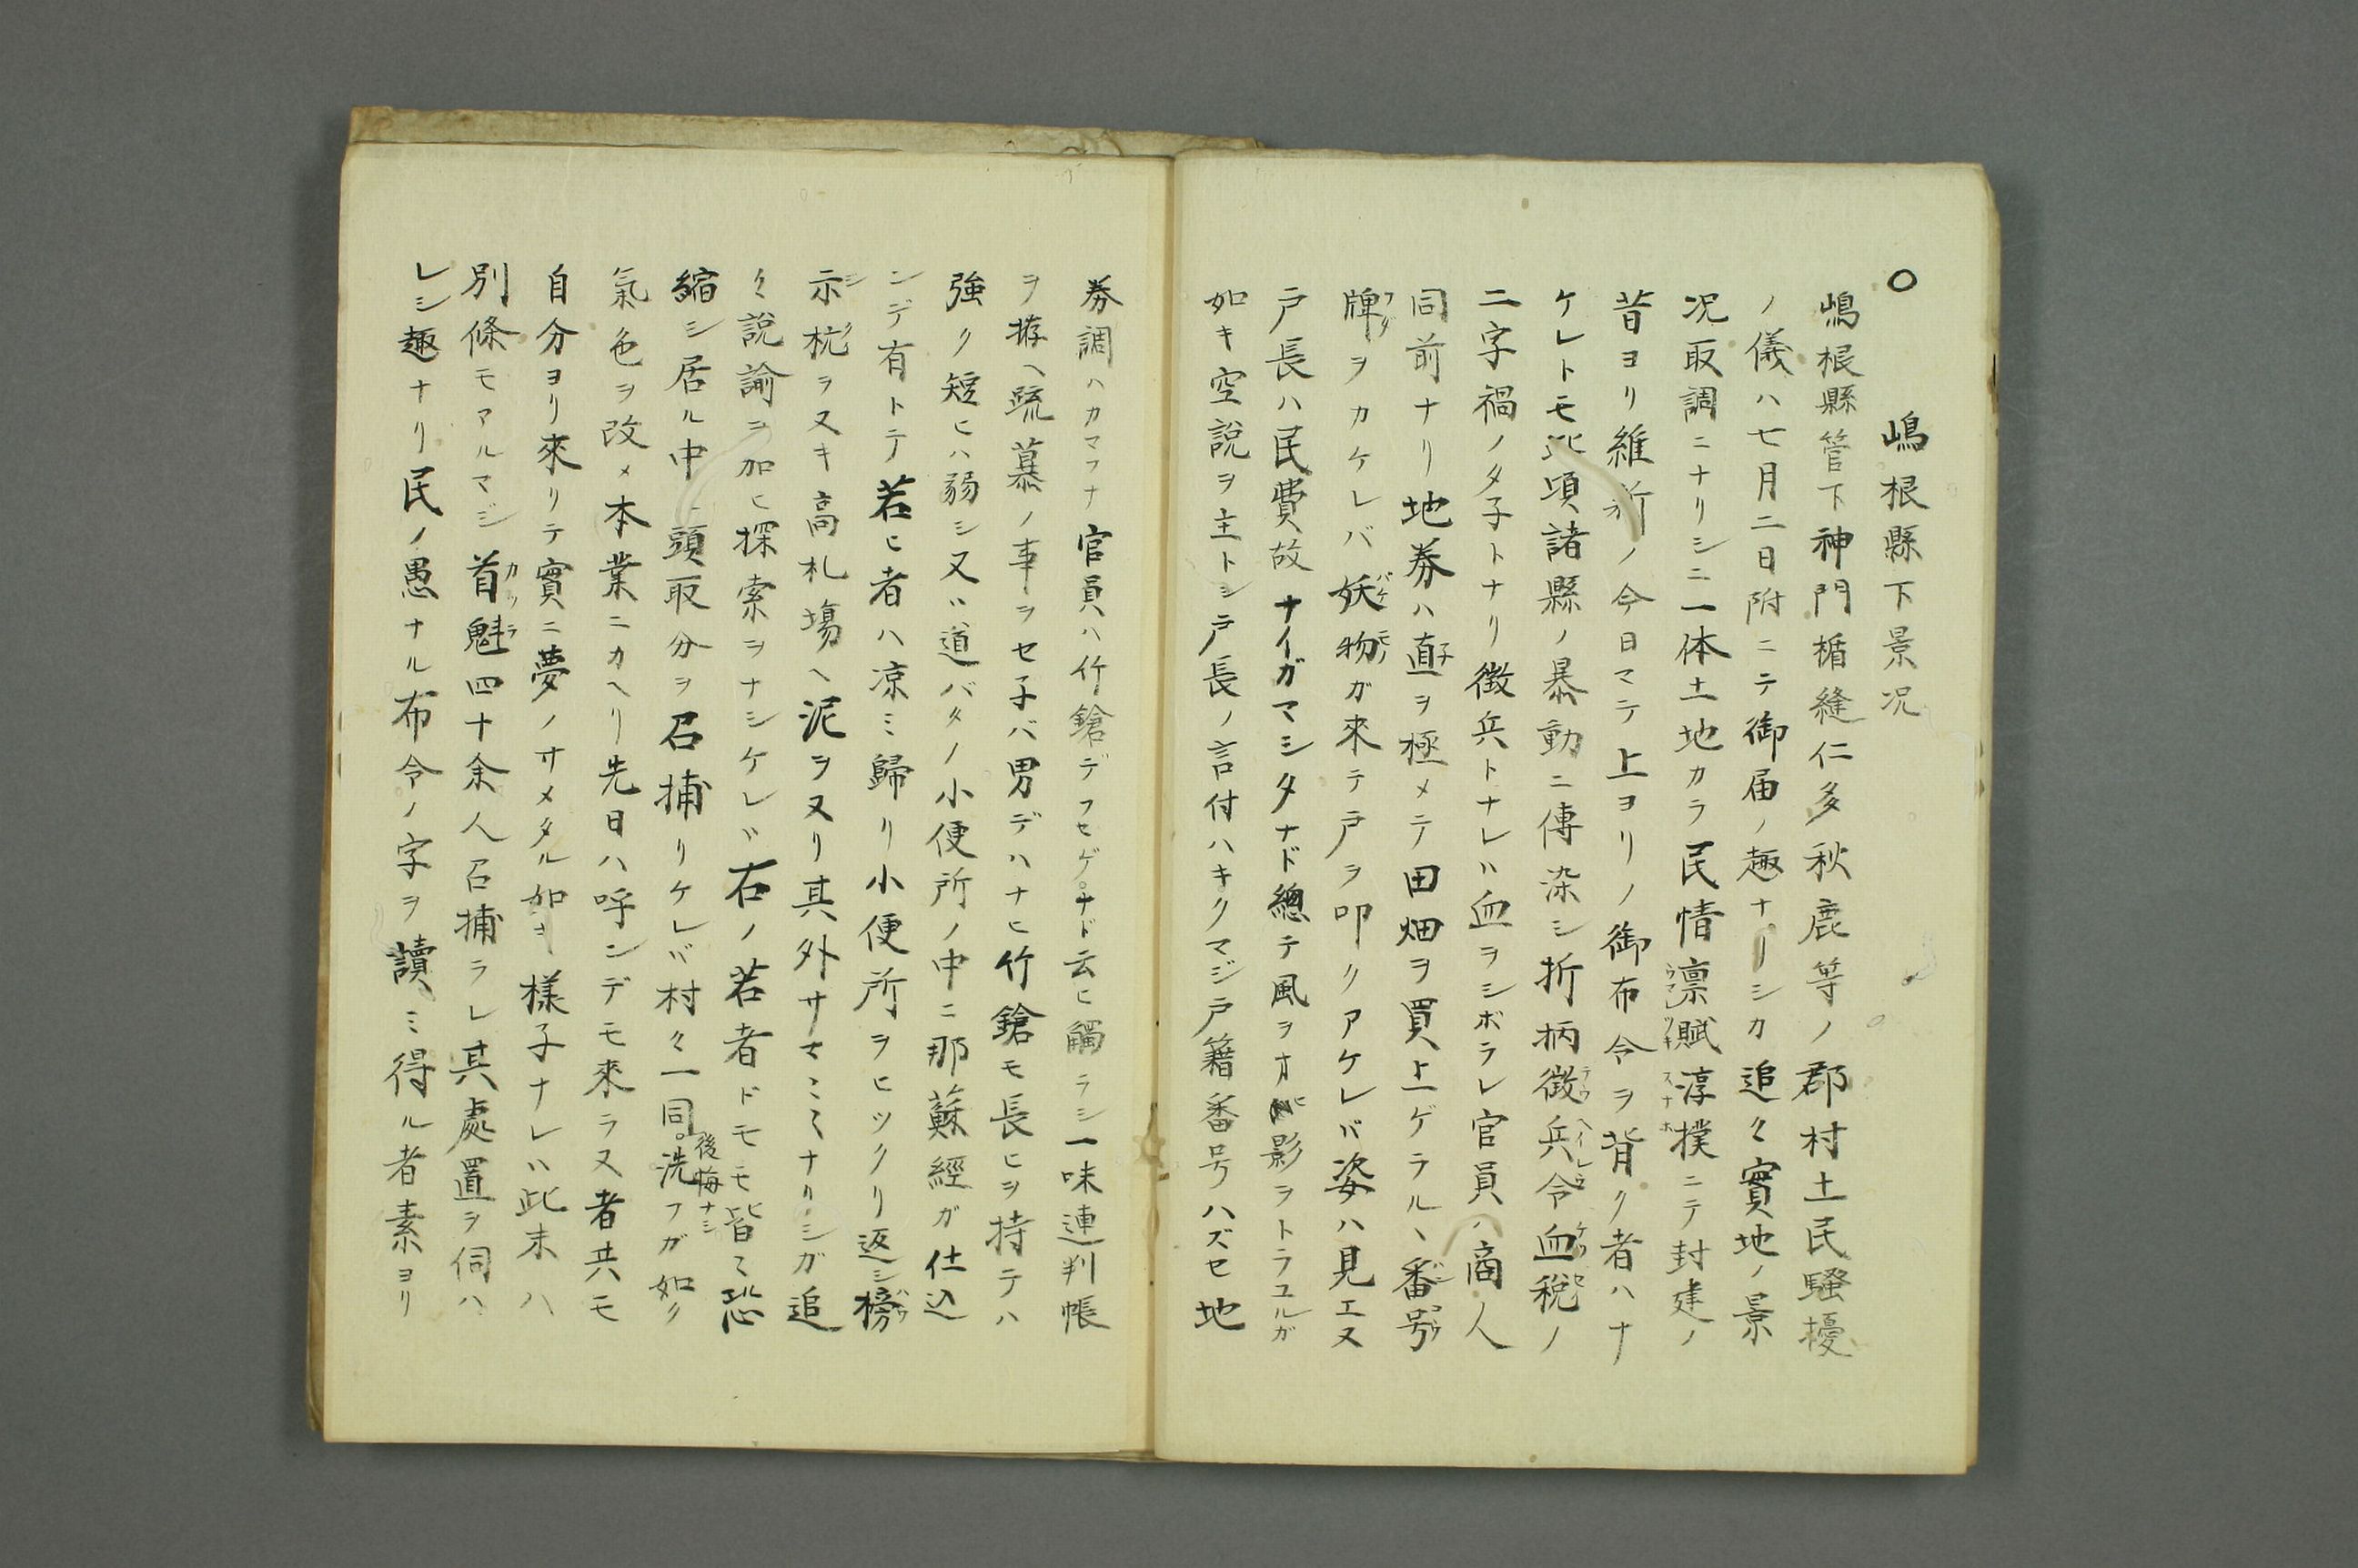 ○
嶋根縣下景况
嶋根縣管下神門楯縫仁多秋鹿等ノ郡村土民騷擾
ノ儀ハ七月二日附ニテ御届ノ趣ナリシカ追々實地ノ景
况取調ニナリシニ一体土地カラ民情凛賦淳撲ニテ封建ノ
昔ヨリ維新ノ今日マテ上ヨリノ御布令ヲ背ク者ハナ
ケレトモ此項諸縣ノ暴動ニ傳染シ折柄徴兵令血税ノ
二字禍ノタ子トナリ徴兵トナレハ血ヲシボラレ官員ハ商人
同前ナリ地券ハ直ヲ極メテ田畑ヲ買上ゲラル、番号
牌ヲカケレバ妖物ガ來テ戸ヲ叩クアケレバ姿ハ見エヌ
戸長ハ民費故ナイガマシタナド總テ風ヲオヒ影ヲトラユルガ
如キ空説ヲ主トシ戸長ノ言付ハキクマジ戸籍番号ハズセ地
券調ハカマフナ官員ハ竹鎗デフセゲナド云ヒ觸ラシ一味連判帳
ヲ拵ヘ疏慕ノ事ヲセ子バ男デハナヒ竹鎗モ長ヒヲ持テハ
強ク短ヒハ弱シ又ハ道バタノ小便所ノ中ニ那蘇經ガ仕込
ンデ有トテ若ヒ者ハ凉ミ歸リ小便所ヲヒックリ返シ榜
示杭ヲヌキ高札塲ヘ泥ヲヌリ其外サマミミナリシガ追
々說諭ヲ加ヒ探索ヲナシケレバ右ノ若者ドモモ皆々恐
縮シ居ル中ニ頭取分ヲ召捕リケレバ村々一同後悔ナシ洗フガ如ク
氣色ヲ改メ本業ニカヘリ先日ハ呼ンデモ來ラヌ者共モ
自分ヨリ來リテ實ニ夢ノサメタル如キ樣子ナレハ此末ハ
別條モアルマジ首魁四十余人召捕ラレ其處置ヲ伺ハ
レシ趣ナリ民ノ愚ナル布令ノ字ヲ讀ミ得ル者素ヨリ